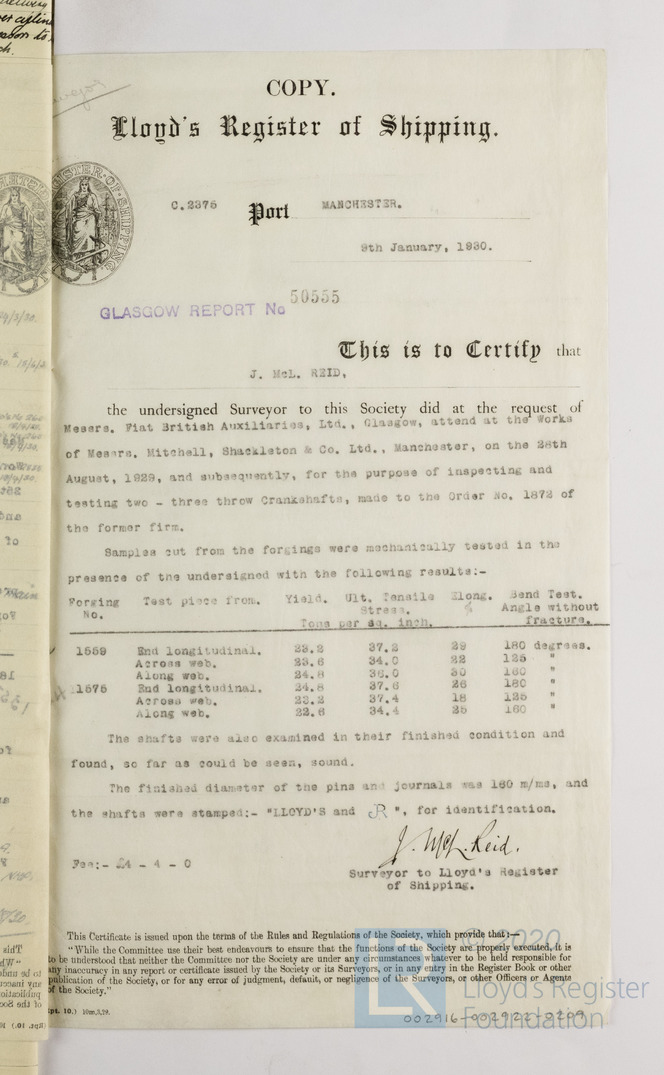 COPY.
Lloyd's Register of Shipping.
C.2375 Port MANCHESTER.
9th January, 1930.
GLASGOW REPORT No 50555
This is to Certify that
J. McL. REID,
the undersigned Surveyor to this Society did at the request of
Messrs. Fiat British Auxiliaries, Ltd., Glasgow, attend at the Works
of Messrs. Mitchell, Shackleton & Co. Ltd., Manchester, on the 28th
August, 1929, and subsequently, for the purpose of inspecting and
testing two - three throw Crankshafts, made to the Order No. 1872 of
the former firm.
Samples cut from the forgings were mechanically tested in the
presence of the undersigned with the following results:-
Forging Test piece from. Yield. Ult. Tensile Elong. Bend Test.
No. Stress. % Angle without
Tons per sq. inch. fracture.
1559 End longitudinal. 23.2 37.2 29 180 degrees.
Across web. 23.6 34.0 22 125 "
Along web. 24.8 36.0 30 180 "
1575 End longitudinal. 24.8 37.6 26 180 "
Across web. 23.2 37.4 18 125 "
Along web. 22.8 34.4 25 180 "
The shafts were also examined in their finished condition and
found, so far as could be seen, sound.
The finished diameter of the pins and journals was 160 m/ms, and
the shafts were stamped:- "LLOYD'S and JR ", for identification.
J. McL. Reid.
Fee:- £4 - 4 - 0
Surveyor to Lloyd's Register
of Shipping.
This Certificate is issued upon the terms of the Rules and Regulations of the Society, which provide that:—
"While the Committee use their best endeavours to ensure that the functions of the Society are properly executed, it is
to be understood that neither the Committee nor the Society are under any circumstances whatever to be held responsible for
any inaccuracy in any report or certificate issued by the Society or its Surveyors, or in any entry in the Register Book or other
publication of the Society, or for any error of judgment, default, or negligence of the Surveyors, or other Officers or Agents
of the Society."
10m,3,29.
2020
Lloyd's Register
Foundation
002916-002922-0209